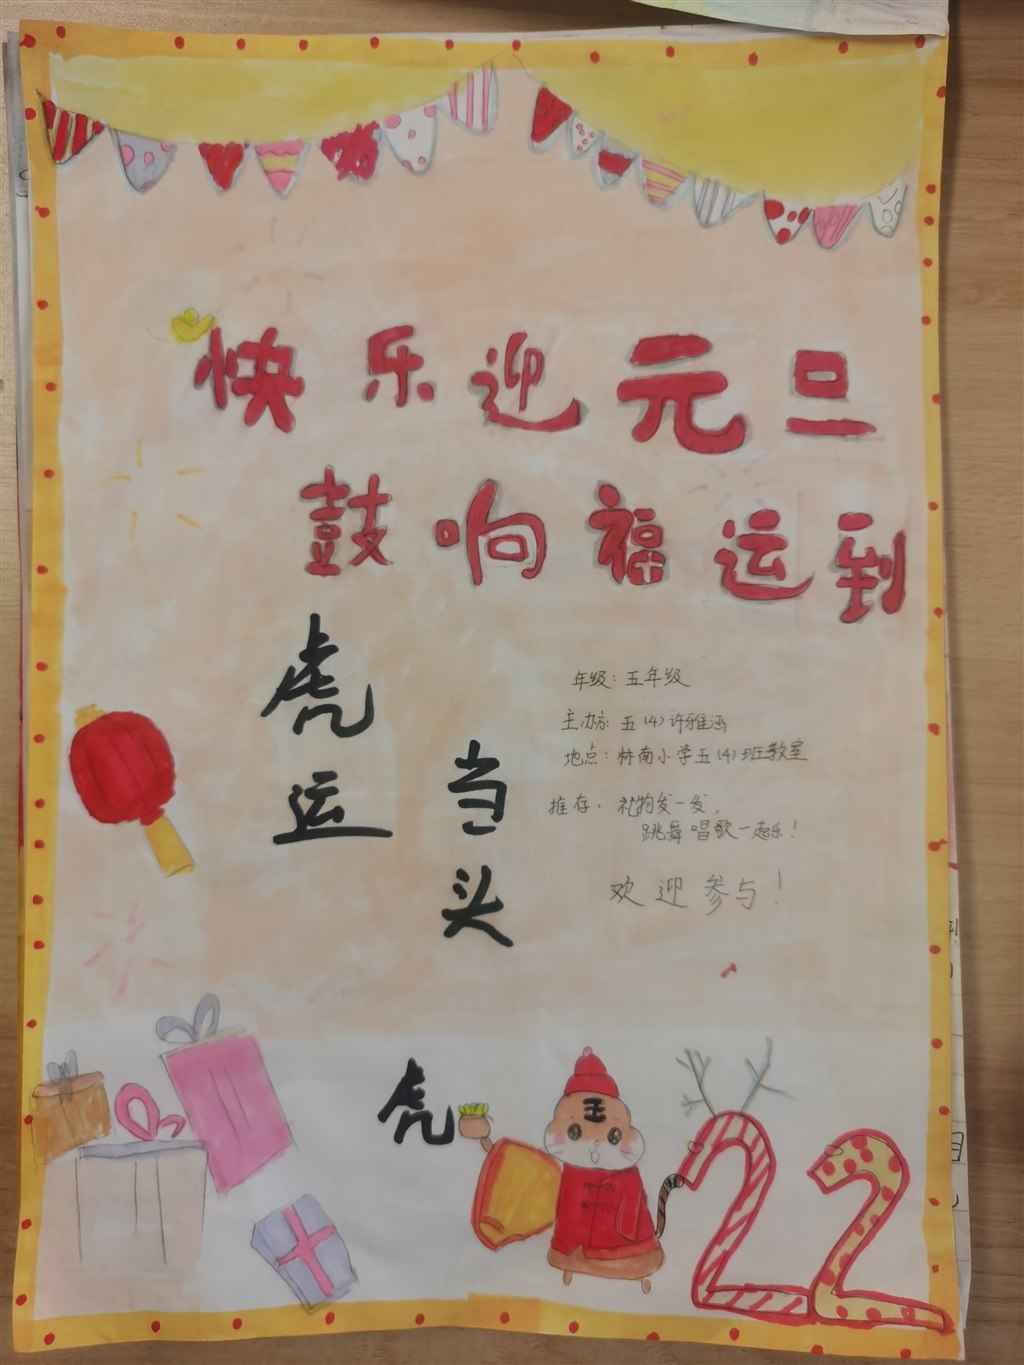 快乐迎元旦
鼓响福运到
虎运
当头
年级：五年级
主办方：五（4）许雅涵
地点：林南小学五（4）班教室
推存：礼物发一发，
跳舞唱歌一起乐！
欢迎参与！
虎
王
22